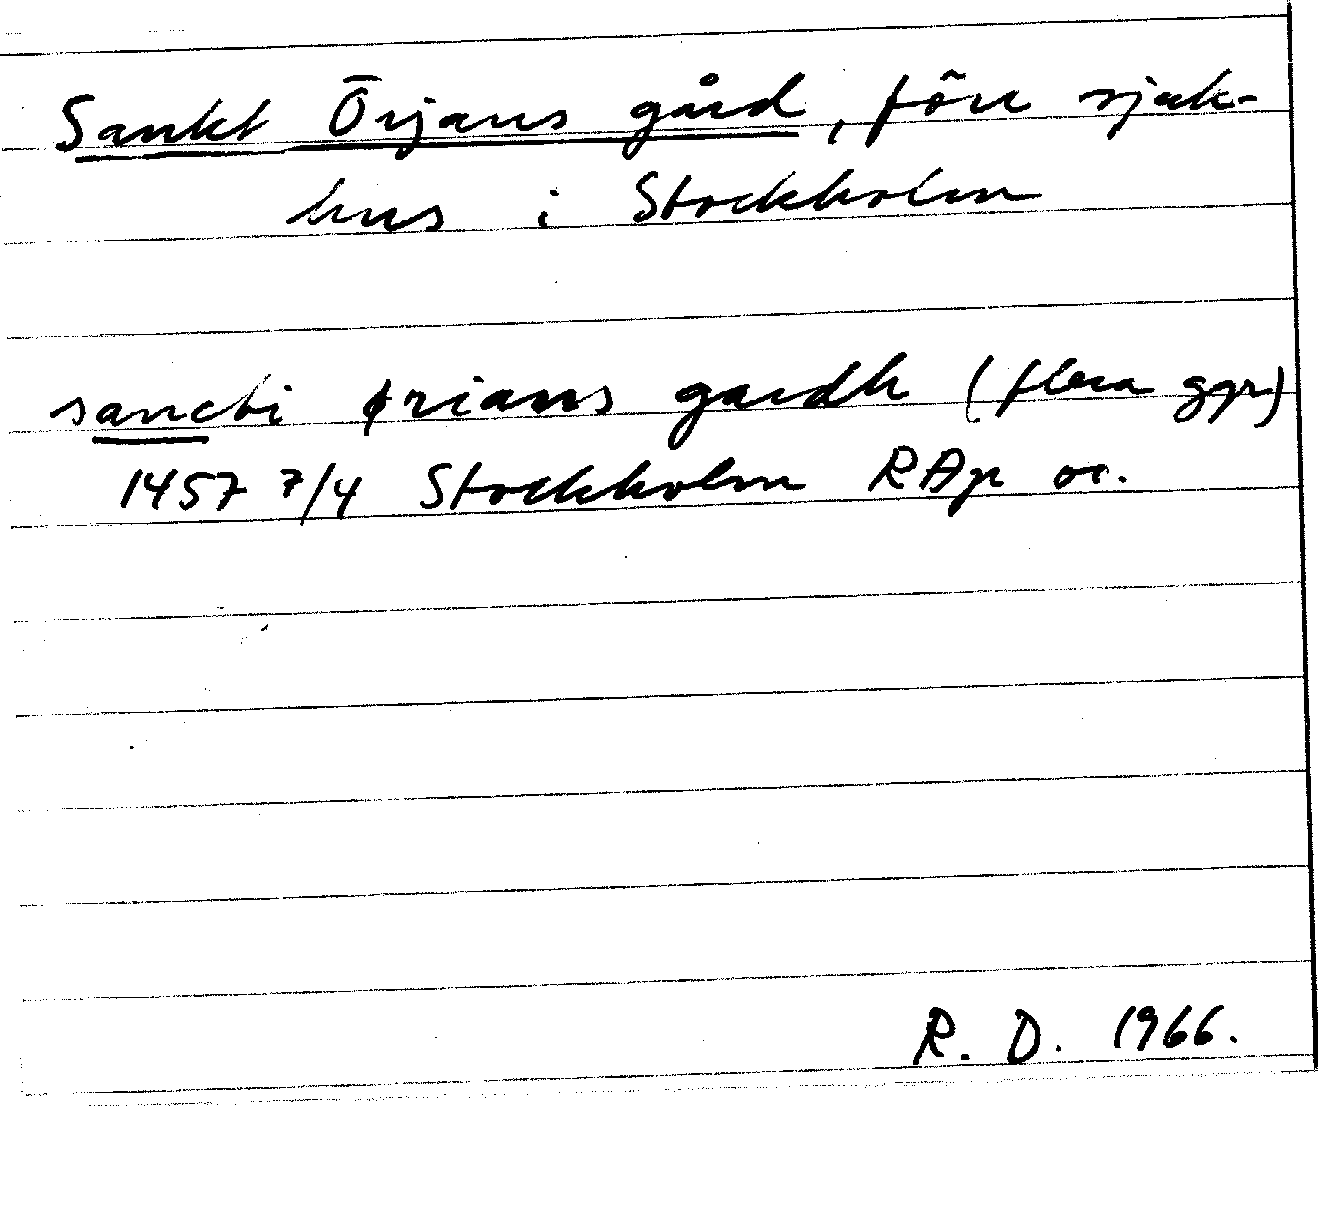 Sankt Örjans gård, förr sjuk-
hus i Stockholm
sancti ørians gardh (flera ggr)
1457 7/4 Stockholm RAp or.
R. D. 1966.